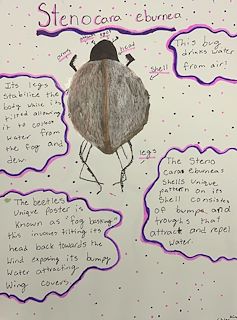 Stenocara eburnea
head
shell
legs
This bug
drinks water
from air!
Its legs
Stabilize the
body while its
tilted allowing
it to collect
water from
the fog and
dew.
The Steno
cara eburneas
Shells unique
pattern on its
Shell consists
of bumps and
troughs that
attract and repel
water.
The beetles
Unique poster is
Known as "fog basking"
this involves tilting its
head back towards the
Wind exposing its bumpy
Water attracting
Wing covers